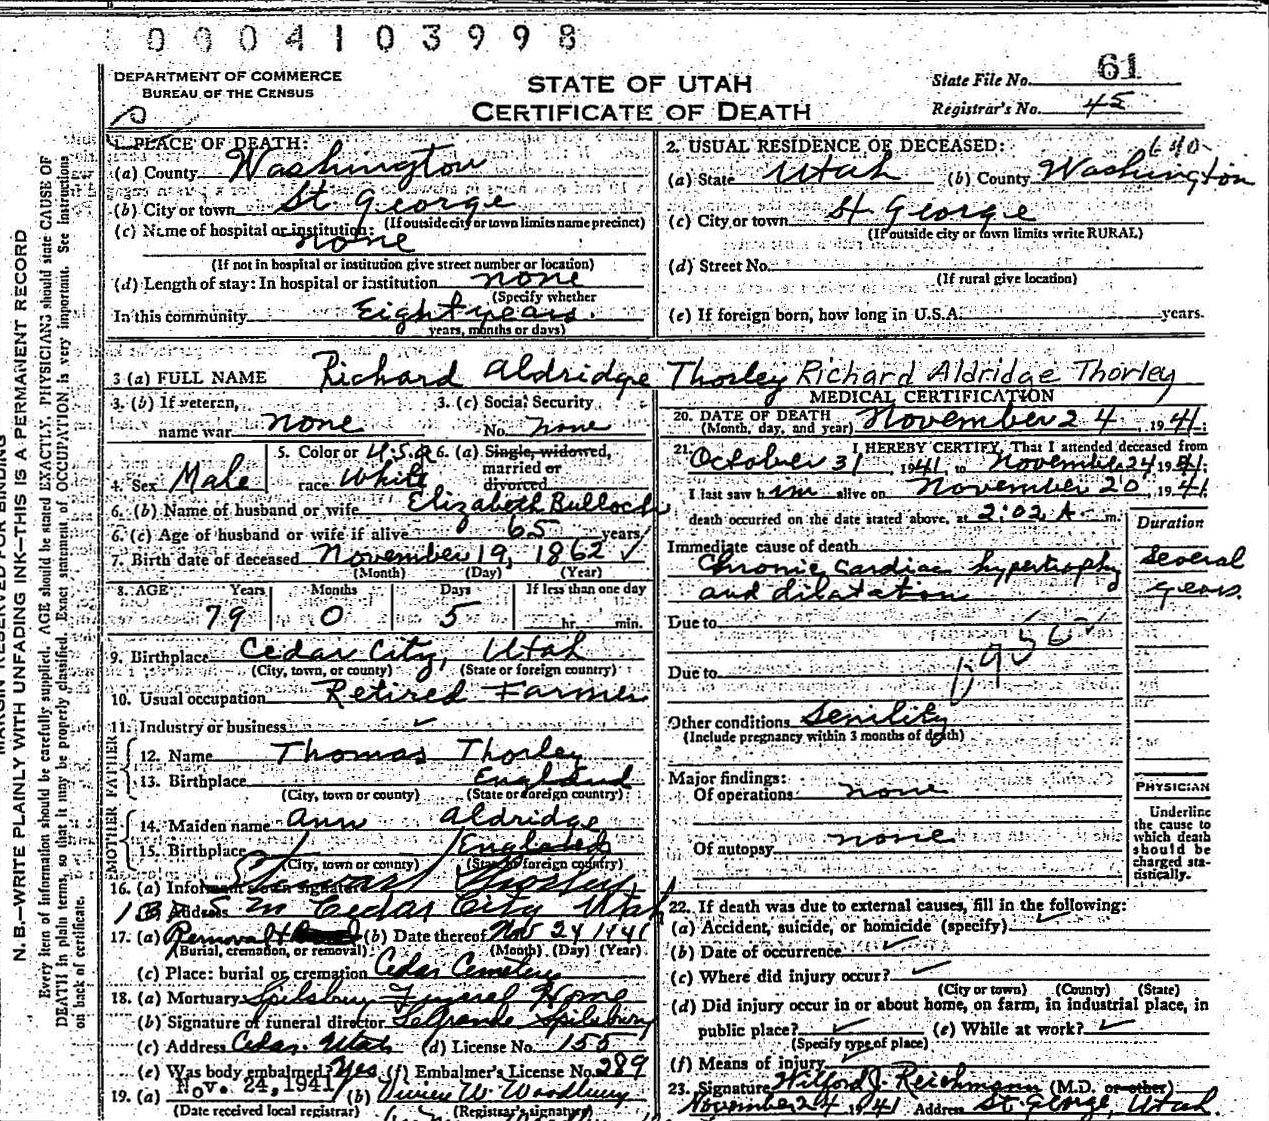 0004103998
DEPARTMENT OF COMMERCE
BUREAU OF THE CENSUS
STATE OF UTAH
CERTIFICATE OF DEATH
State File No. 61
Registrar's No. 45
1. PLACE OF DEATH:
(a) County Washington
(b) City or town St George
(If outside city or town limits name precinct)
(c) Name of hospital or institution:
none
(If not in hospital or institution give street number or location)
(d) Length of stay: In hospital or institution none
(Specify whether
In this community Eight years.
years, months or days)
2. USUAL RESIDENCE OF DECEASED:
(a) State Utah (b) County Washington
(c) City or town St George
(If outside city or town limits write RURAL)
(d) Street No.
(If rural give location)
(e) If foreign born, how long in U.S.A. years.
3 (a) FULL NAME Richard Aldridge Thorley Richard Aldridge Thorley
3. (b) If veteran, name war none
3. (c) Social Security No. none
4. Sex Male
5. Color or race U.S.A White
6. (a) Single, widowed, married or divorced
6. (b) Name of husband or wife Elizabeth Bulloch
6. (c) Age of husband or wife if alive 65 years
7. Birth date of deceased November 19, 1862
(Month) (Day) (Year)
8. AGE Years Months Days If less than one day
79 0 5 hr. min.
9. Birthplace Cedar City, Utah
(City, town, or county) (State or foreign country)
10. Usual occupation Retired Farmer
11. Industry or business
FATHER
12. Name Thomas Thorley
13. Birthplace England
(City, town or county) (State or foreign country)
MOTHER
14. Maiden name Ann Aldridge
15. Birthplace England
(City, town or county) (State or foreign country)
16. (a) Informant's own signature Thorley
(b) Address Cedar City Utah
17. (a) Removal (b) Date thereof Nov 24 1941
(Burial, cremation, or removal) (Month) (Day) (Year)
(c) Place: burial or cremation Cedar Cemetery
18. (a) Mortuary Spilsbury Funeral Home
(b) Signature of funeral director LeGrande Spilsbury
(c) Address Cedar. Utah (d) License No. 155
(e) Was body embalmed? Yes (f) Embalmer's License No. 289
19. (a) Nov. 24, 1941 (b) Vivien W. Woodbury
(Date received local registrar) (Registrar's signature)
MEDICAL CERTIFICATION
20. DATE OF DEATH November 24, 1941.
(Month, day, and year)
21. I HEREBY CERTIFY, That I attended deceased from
October 31 1941 to November 24 1941;
I last saw h im alive on November 20, 1941
death occurred on the date stated above, at 2:02 A m.
Duration
Immediate cause of death
Chronic Cardiac hypertrophy Several
and dilatation years.
Due to
Due to
Other conditions Senility
(Include pregnancy within 3 months of death)
Major findings:
Of operations none
Of autopsy none
PHYSICIAN
Underline
the cause to
which death
should be
charged sta-
tistically.
22. If death was due to external causes, fill in the following:
(a) Accident, suicide, or homicide (specify)
(b) Date of occurrence
(c) Where did injury occur?
(City or town) (County) (State)
(d) Did injury occur in or about home, on farm, in industrial place, in
public place? (e) While at work?
(Specify type of place)
(f) Means of injury
23. Signature Wilford J. Reichmann (M.D. or other)
November 24 1941 Address St. George, Utah.
N. B.—WRITE PLAINLY WITH UNFADING INK—THIS IS A PERMANENT RECORD
Every item of information should be carefully supplied. AGE should be stated EXACTLY. PHYSICIANS should state CAUSE OF
DEATH in plain terms, so that it may be properly classified. Exact statement of OCCUPATION is very important. See instructions
on back of certificate.